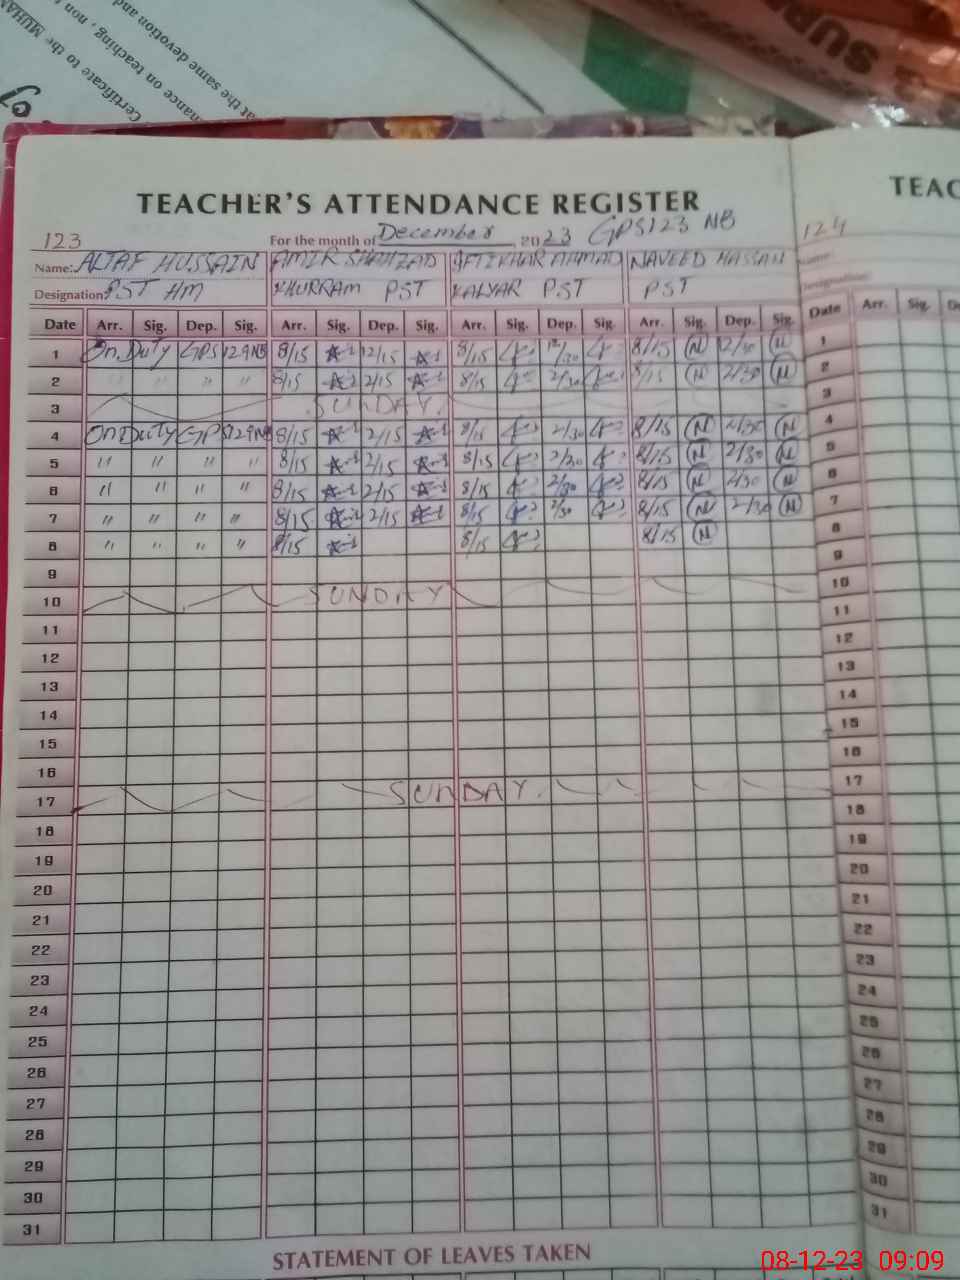 at the same devotion and
nance on teaching, non
Certificate to the MUHAM
SUPR
TEACHER'S ATTENDANCE REGISTER
TEAC
123
For the month of December, 2023 GPS 123 NB
124
Name: ALTAF HUSSAIN AMIR SHAHZAD IFTIKHAR AHMAD NAVEED HASSAN
Name:
Designation: PST HM KHURRAM PST KALYAR PST PST
Designation:
Date Arr. Sig. Dep. Sig. Arr. Sig. Dep. Sig. Arr. Sig. Dep. Sig. Arr. Sig. Dep. Sig. Date Arr. Sig. De
1 On Duty GPS 129 NB 8/15 12/15 8/15 12/30 8/15 N 12/30 N 1
2 " " " " 8/15 2/15 8/15 2/30 8/15 N 2/30 N 2
3 SUNDAY. 3
4 On Duty GPS 129 NB 8/15 2/15 8/15 2/30 8/15 N 2/30 N 4
5 " " " " 8/15 2/15 8/15 2/30 8/15 N 2/30 N 5
6 " " " " 8/15 2/15 8/15 2/30 8/15 N 2/30 N 6
7 " " " " 8/15 2/15 8/15 2/30 8/15 N 2/30 N 7
8 " " " " 8/15 8/15 8/15 N 8
9 9
10 SUNDAY 10
11 11
12 12
13 13
14 14
15 15
16 16
17 SUNDAY. 17
18 18
19 19
20 20
21 21
22 22
23 23
24 24
25 25
26 26
27 27
28 28
29 29
30 30
31 31
STATEMENT OF LEAVES TAKEN
08-12-23 09:09